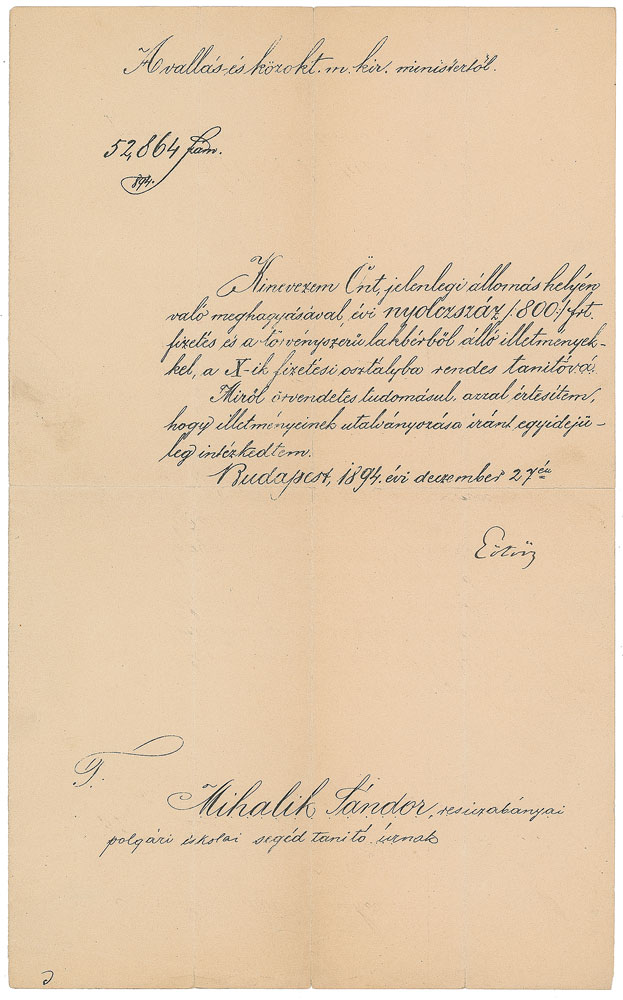 A vallás és közokt. m. kir. ministertől.
52,864 szám.
894.
Kinevezem Önt, jelenlegi állomás helyén
való meghagyásával, évi nyolczszáz /:800:/ frt.
fizetés és a törvényszerű lakbérből álló illetmények-
kel, a X-ik fizetési osztályba rendes tanítóvá.
Miről örvendetes tudomásul azzal értesítem,
hogy illetményeinek utalványozása iránt egyidejű-
leg intézkedtem.
Budapest, 1894. évi deczember 27én
Eötvös
T.
Mihalik Sándor, resiczabányai
polgári iskolai segéd tanító úrnak